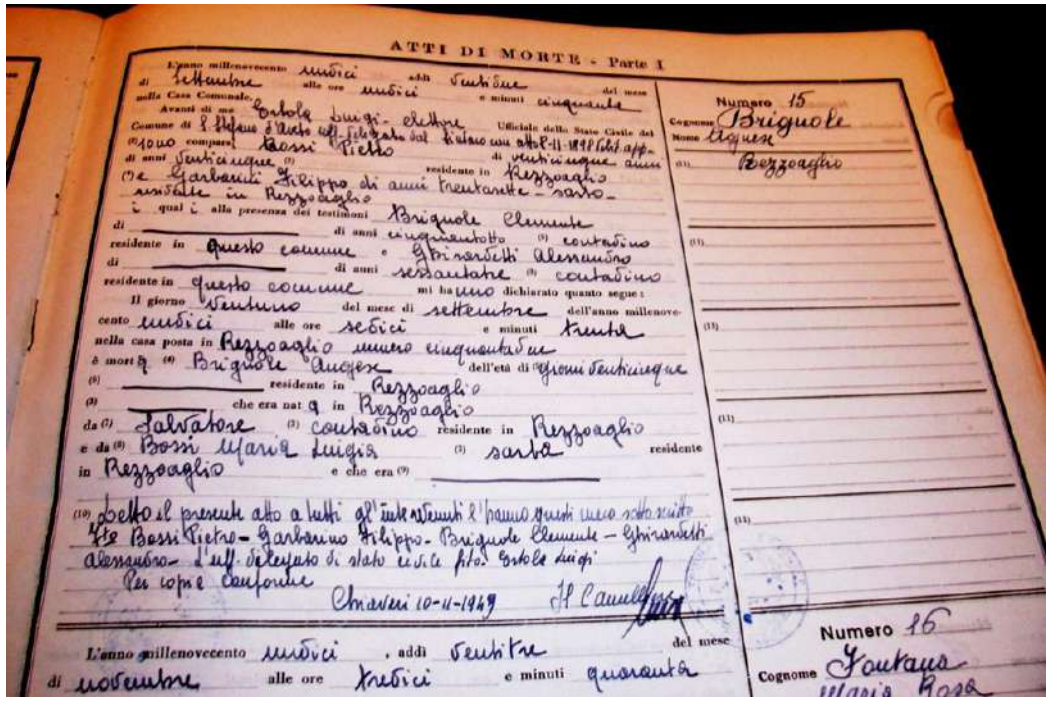 ATTI DI MORTE - Parte I
L'anno millenovecento undici addì ventidue del mese
di Settembre alle ore undici e minuti cinquanta
nella Casa Comunale.
Avanti di me Estola Luigi - elettore Ufficiale dello Stato Civile del
Comune di S. Stefano d'Aveto uff. delegato dal Sindaco con atto 8-11-1898 debit. app.
sono comparsi Bossi Pietro di venticinque anni
di anni venticinque (2) residente in Rezzoaglio
(3) e Garbarini Filippo di anni trentasette - sarto -
residente in Rezzoaglio
i quali alla presenza dei testimoni Brignole Clemente
di di anni cinquantotto (3) contadino
residente in questo comune e Ghirardetti Alessandro
di di anni sessantatre (3) contadino
residente in questo comune mi hanno dichiarato quanto segue:
Il giorno ventuno del mese di settembre dell'anno millenove-
cento undici alle ore sedici e minuti trenta
nella casa posta in Rezzoaglio numero cinquantadue
è morta (4) Brignole Agnese dell'età di giorni venticinque
(6) residente in Rezzoaglio
(3) che era nata in Rezzoaglio
da (7) Salvatore (3) contadino residente in Rezzoaglio
e da (8) Bossi Maria Luigia (3) sarta residente
in Rezzoaglio e che era (9)
(10) Letto il presente atto a tutti gl'intervenuti l'hanno questi meco sottoscritto
Fto Bossi Pietro - Garbarino Filippo - Brignole Clemente - Ghirardetti
Alessandro - L'uff. delegato di stato civile fto. Estola Luigi
Per copia conforme
Chiaveri 10-11-1949 Il
L'anno millenovecento undici, addì ventitre del mese
di novembre alle ore tredici e minuti quaranta
Numero 15
Cognome Brignole
Nome Agnese
(11) Rezzoaglio
(11)
(13)
(11)
(13)
Numero 16
Cognome Fontana
Maria Rosa